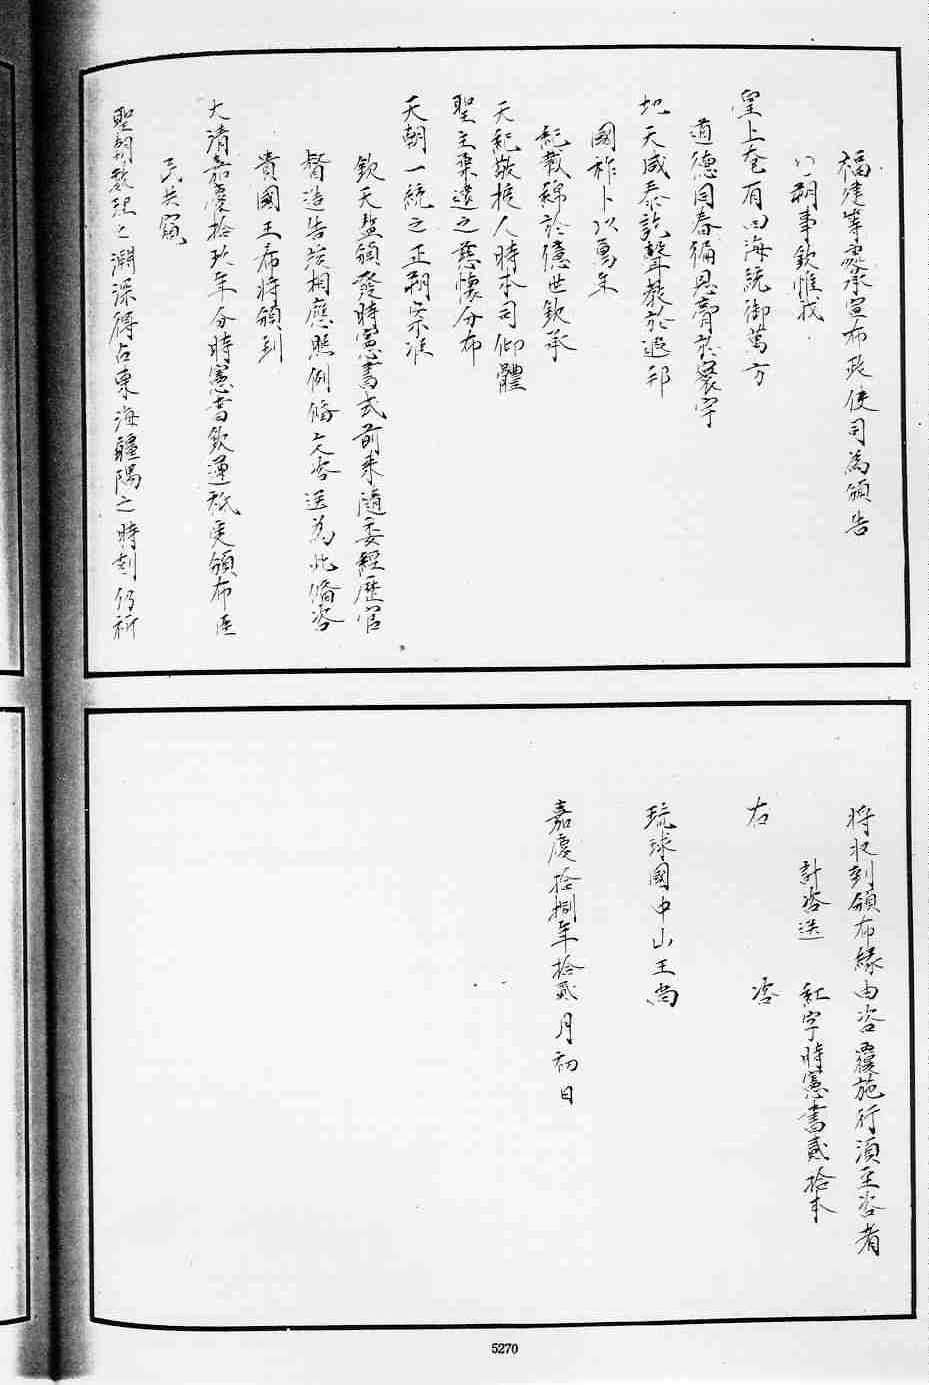 福建等處承宣布政使司為頒告
朔事欽惟我
皇上奄有四海統御萬方
道德同春徧恩膏於寰宇
地天咸泰訖聲教於遐邦
國祚卜以萬年
紀數綿於億世欽承
天紀敬授人時本司仰體
聖主柔遠之慈懷分布
天朝一統之正朔案准
欽天監頒發時憲書式前來隨委經歷官
督造告竣相應照例俻文咨送為此俻咨
貴國王希將頒到
大清嘉慶拾玖年分時憲書欽遵祇受頒布臣
民共窺
聖朝敬理之淵深得占東海疆隅之時刻仍祈
將收到頒布緣由咨覆施行須至咨者
計咨送　紅字時憲書貳拾本
右　咨
琉球國中山王尚
嘉慶拾捌年拾貳月初日
5270